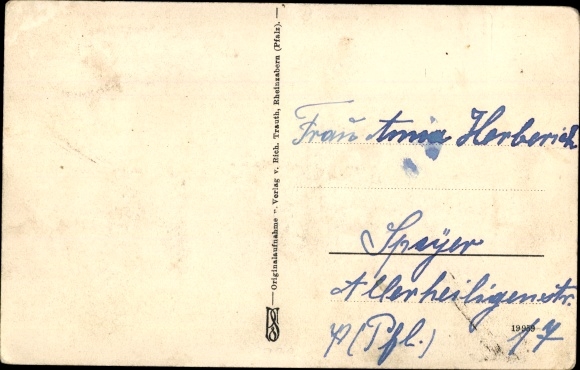 — Originalaufnahme u. Verlag v. Rich. Trauth, Rheinzabern (Pfalz). —
Frau Anna Herberich
Speyer
Allerheiligenstr.
(Pfl.) 17
19959